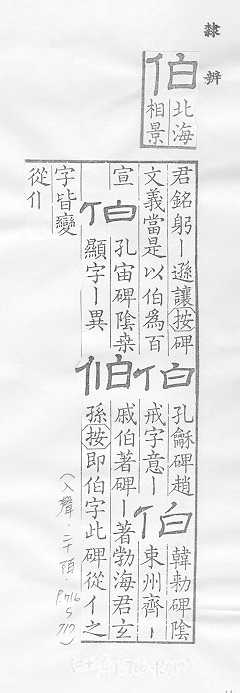 隸辨
伯
北海
相景
君銘躬丨遜讓按碑
文義當是以伯為百
伯
孔龢碑趙
戒字意丨
伯
韓勑碑陰
東州齊丨
宣
伯
孔宙碑陰桒
顯字丨異
伯
戚伯著碑丨著勃海君玄
孫按即伯字此碑從亻之
字皆變
從亻
(入聲·二十陌·P.716 S 717)